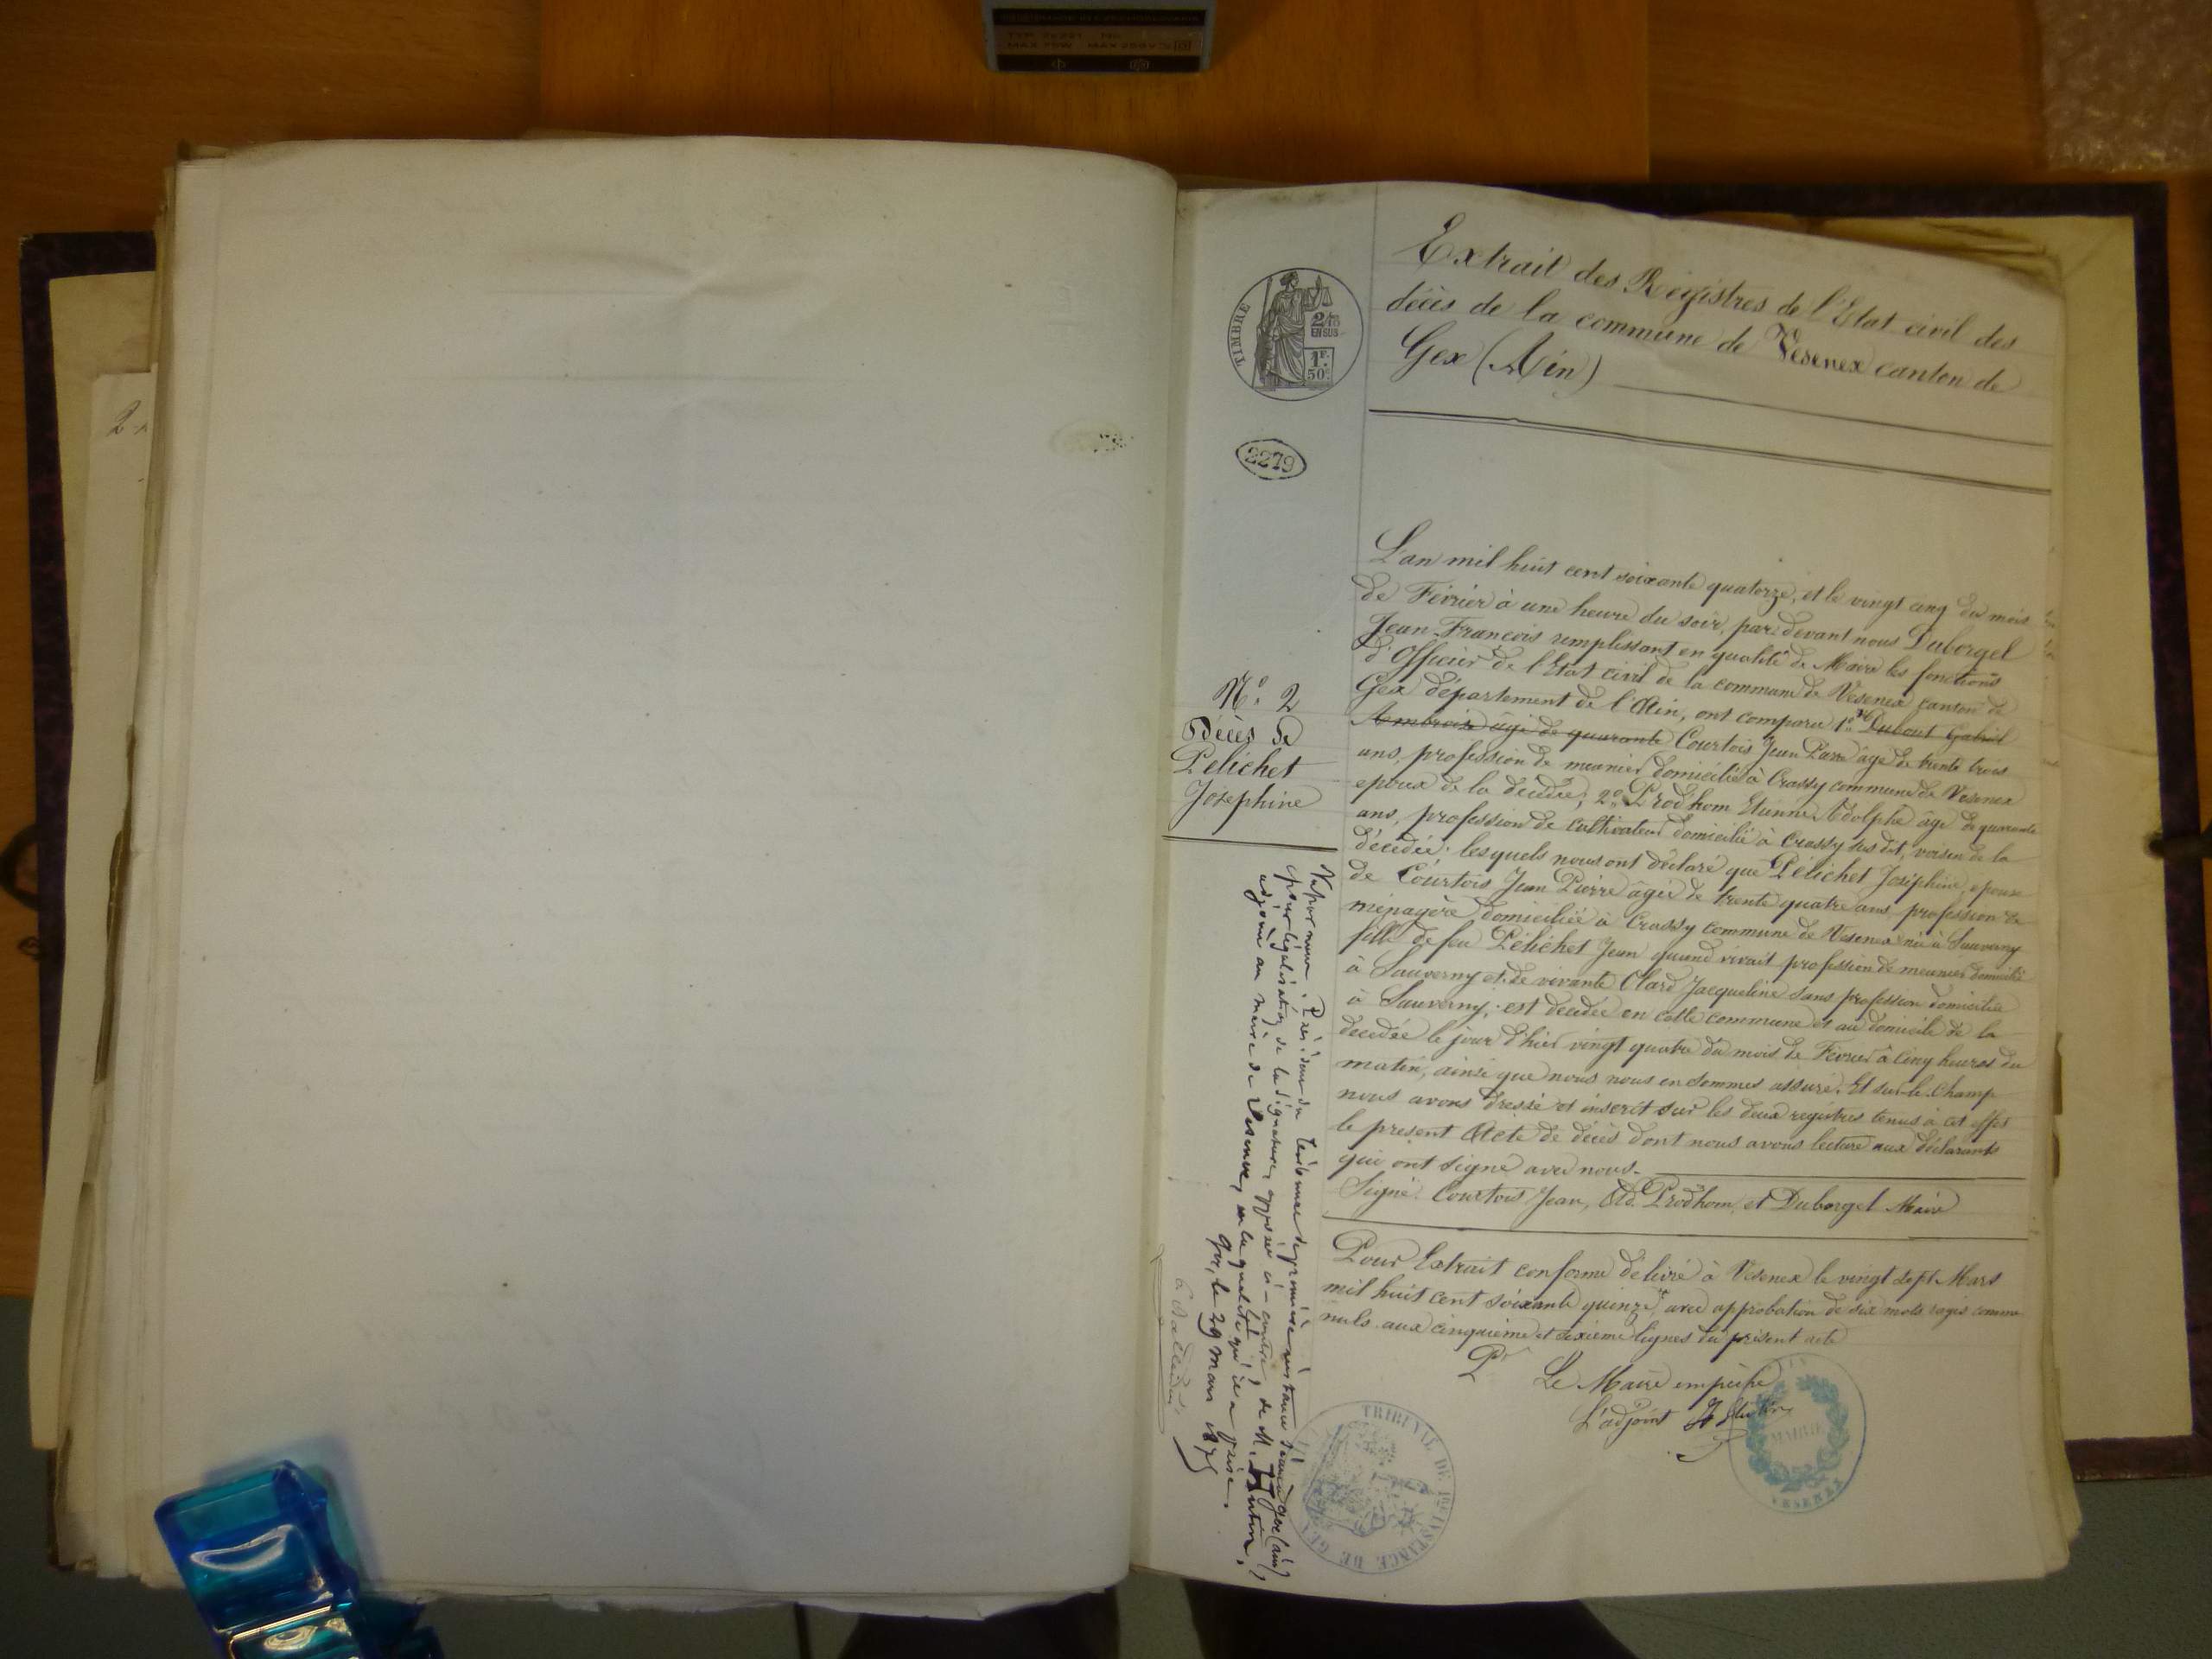 2
TIMBRE
2/10
EN SUS
1F.
50c
2279
Extrait des Registres de l'Etat civil des
décès de la commune de Vesenex canton de
Gex (Ain)
N.o 2
Décès de
Pélichet
Joséphine
L'an mil huit cent soixante quatorze, et le vingt cinq du mois
de Février à une heure du soir, par devant nous Duborgel
Jean-François remplissant en qualité de Maire les fonctions
d'Officier de l'Etat civil de la commune de Vesenex canton de
Gex département de l'Ain, ont comparu 1o Dubout Gabriel
Ambroise âgé de quarante Courtois Jean Pierre âgé de trente trois
ans, profession de meunier domicilié à Crassy commune de Vesenex
epoux de la décédée; 2o Prodhom Etienne Adolphe âgé de quarante
ans, profession de cultivateur domicilié à Crassy sus dit, voisin de la
décédée; lesquels nous ont déclaré que Pélichet Joséphine, epouse
de Courtois Jean Pierre âgée de trente quatre ans profession de
ménagère domiciliée à Crassy commune de Vesenex née à Sauverny
fille de feu Pélichet Jean quand vivait profession de meunier domicilié
à Sauverny et de vivante Olard Jacqueline sans profession domiciliée
à Sauverny; est décédée en cette commune et au domicile de la
décédée le jour d'hier vingt quatre du mois de Février à cinq heures du
matin, ainsi que nous nous en sommes assuré. Et sur-le-champ
nous avons dressé et inscrit sur les deux registres tenus à cet effet
le présent Acte de décès dont nous avons lecture aux déclarants
qui ont signé avec nous.
Signé: Courtois Jean, Ad. Prodhom, et Duborgel Maire
Pour Extrait conforme délivré à Vesenex le vingt sept Mars
mil huit cent soixante quinze, avec approbation de six mots rayés comme
nuls aux cinquième et sixième lignes du présent acte
Pr Le Maire empêché
L'adjoint
MAIRIE
VESENEX
Vu par nous, Président du tribunal de première instance séant à Gex (ain),
pour légalisation de la signature, apposée ci-contre, de M. Hutin,
adjoint au maire de Vesenex, en la qualité qu'il a prise.
Gex, le 29 mars 1875
TRIBUNAL DE 1RE INSTANCE DE GEX